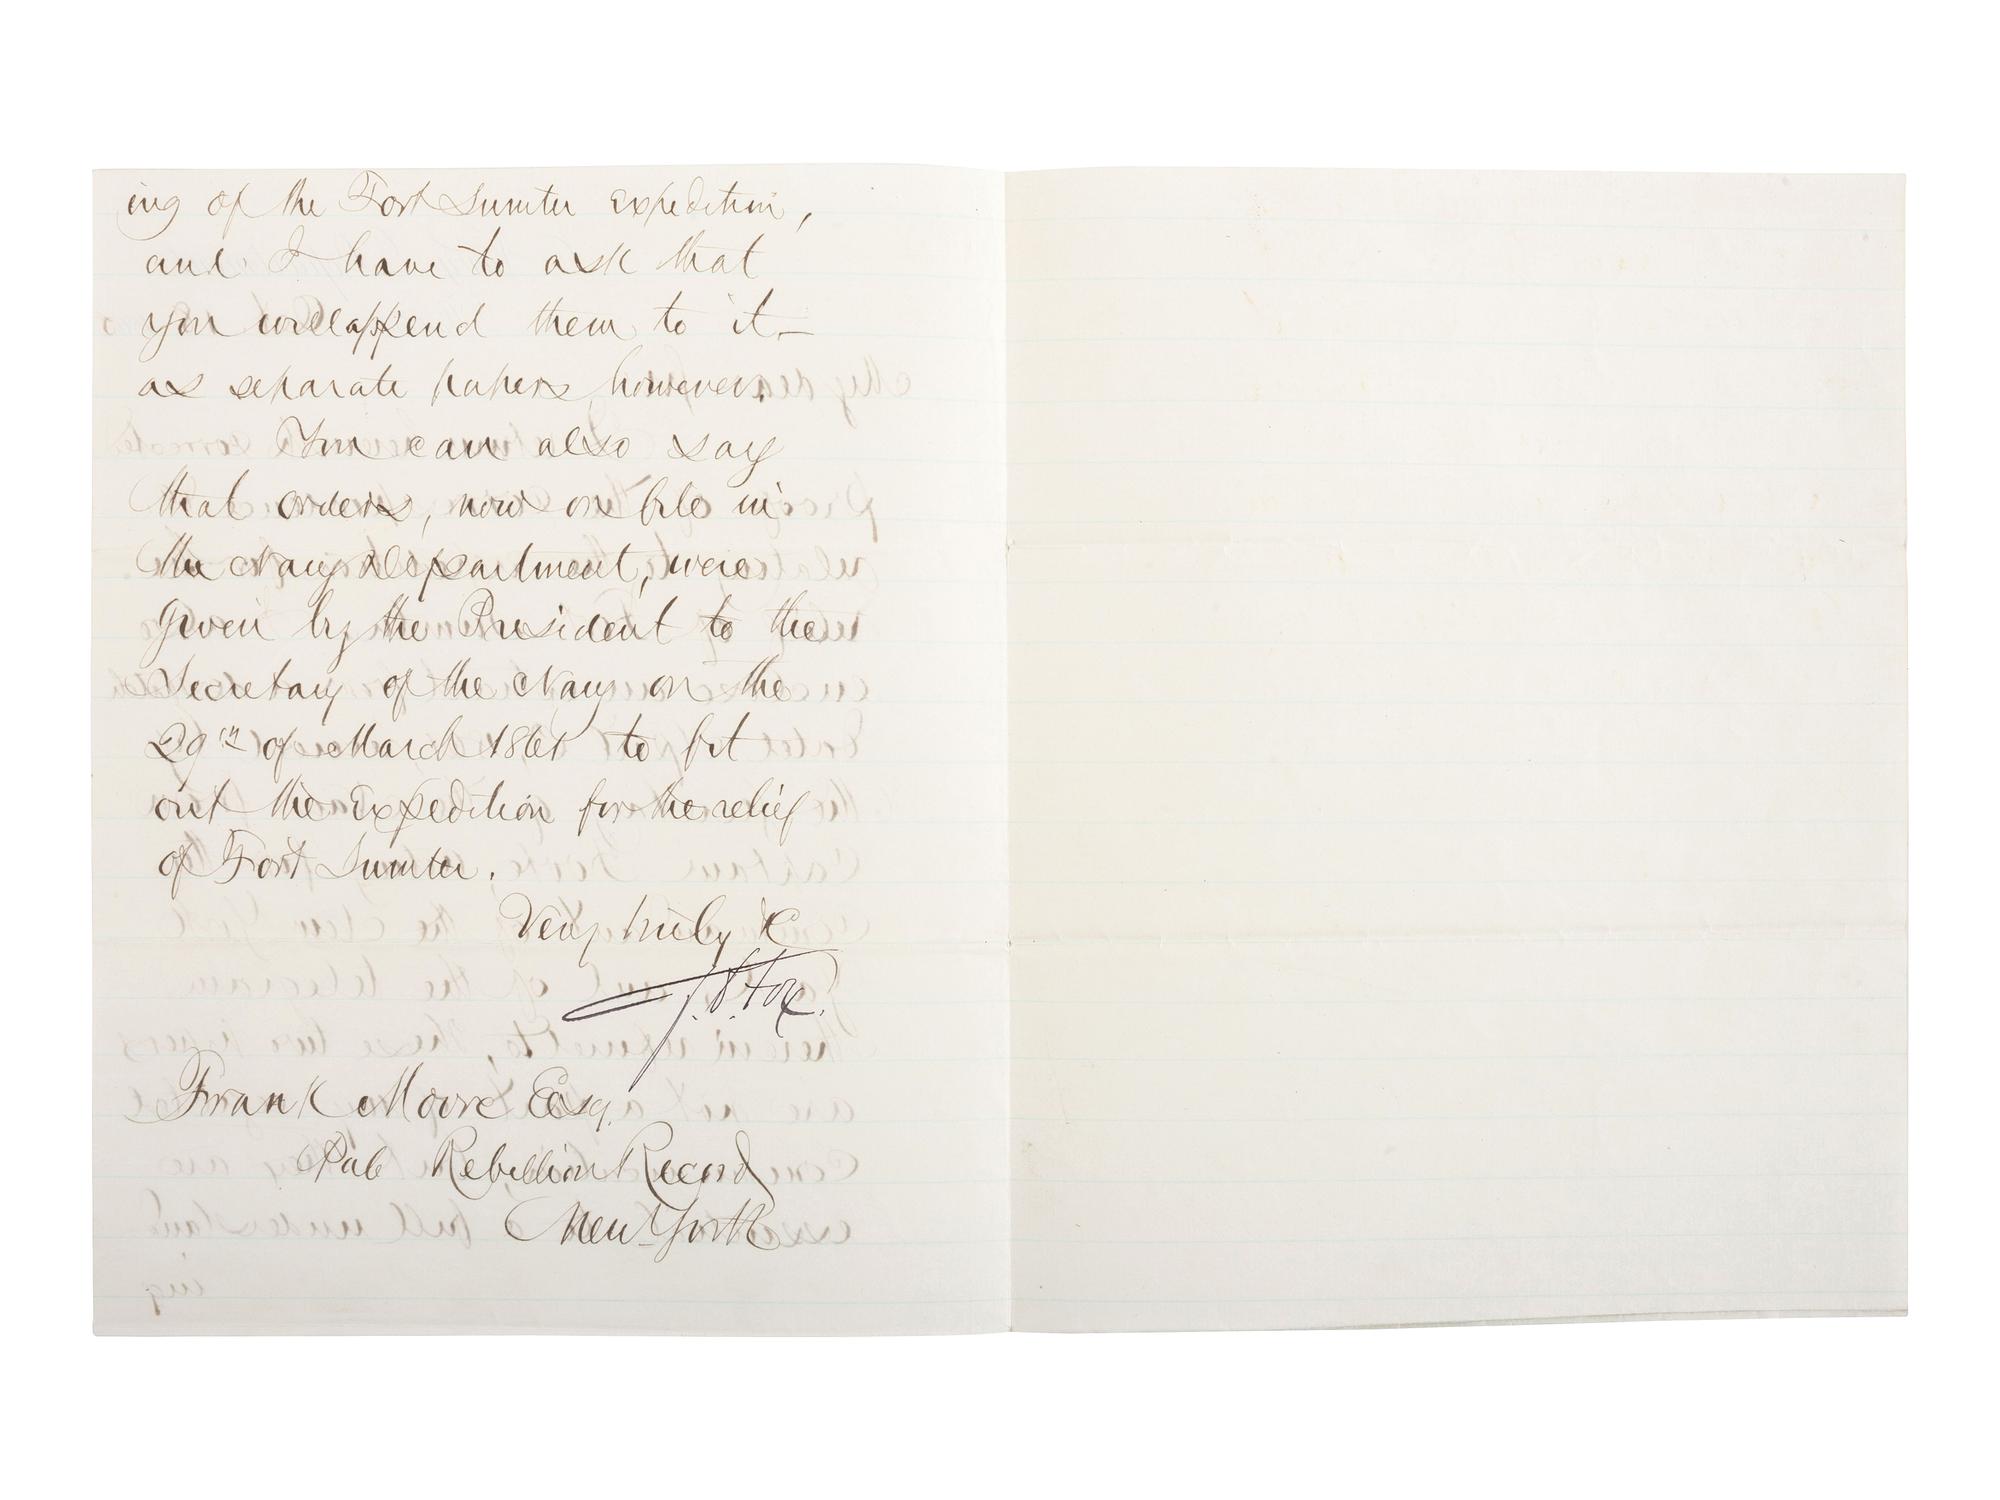 ing of the Fort Sumter Expedition,
and I have to ask that
you will append them to it—
as separate papers, however.
You can also say
that orders, now on file in
the Navy Department, were
given by the President to the
Secretary of the Navy on the
29th of March 1861 to fit
out the Expedition for the relief
of Fort Sumter.
Very truly &c
G. V. Fox.
Frank Moore Esq.
Pub Rebellion Record
New-York